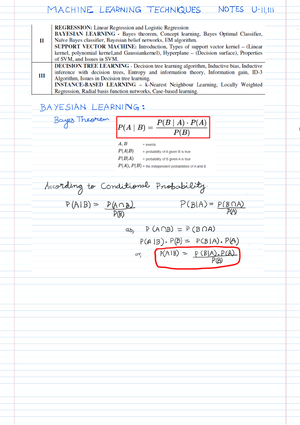 MACHINE LEARNING TECHNIQUES NOTES U-II,III
II
REGRESSION: Linear Regression and Logistic Regression
BAYESIAN LEARNING - Bayes theorem, Concept learning, Bayes Optimal Classifier,
Naïve Bayes classifier, Bayesian belief networks, EM algorithm.
SUPPORT VECTOR MACHINE: Introduction, Types of support vector kernel – (Linear
kernel, polynomial kernel,and Gaussiankernel), Hyperplane – (Decision surface), Properties
of SVM, and Issues in SVM.
III
DECISION TREE LEARNING - Decision tree learning algorithm, Inductive bias, Inductive
inference with decision trees, Entropy and information theory, Information gain, ID-3
Algorithm, Issues in Decision tree learning.
INSTANCE-BASED LEARNING – k-Nearest Neighbour Learning, Locally Weighted
Regression, Radial basis function networks, Case-based learning.
BAYESIAN LEARNING:
Bayes Theorem
P(A | B) = P(B | A) · P(A) / P(B)
A, B = events
P(A|B) = probability of A given B is true
P(B|A) = probability of B given A is true
P(A), P(B) = the independent probabilities of A and B
According to Conditional Probability
P(A|B) = P(A∩B) / P(B) P(B|A) = P(B∩A) / P(A)
as, P(A∩B) = P(B∩A)
P(A|B). P(B) = P(B|A). P(A)
or, P(A|B) = P(B|A). P(A) / P(B)